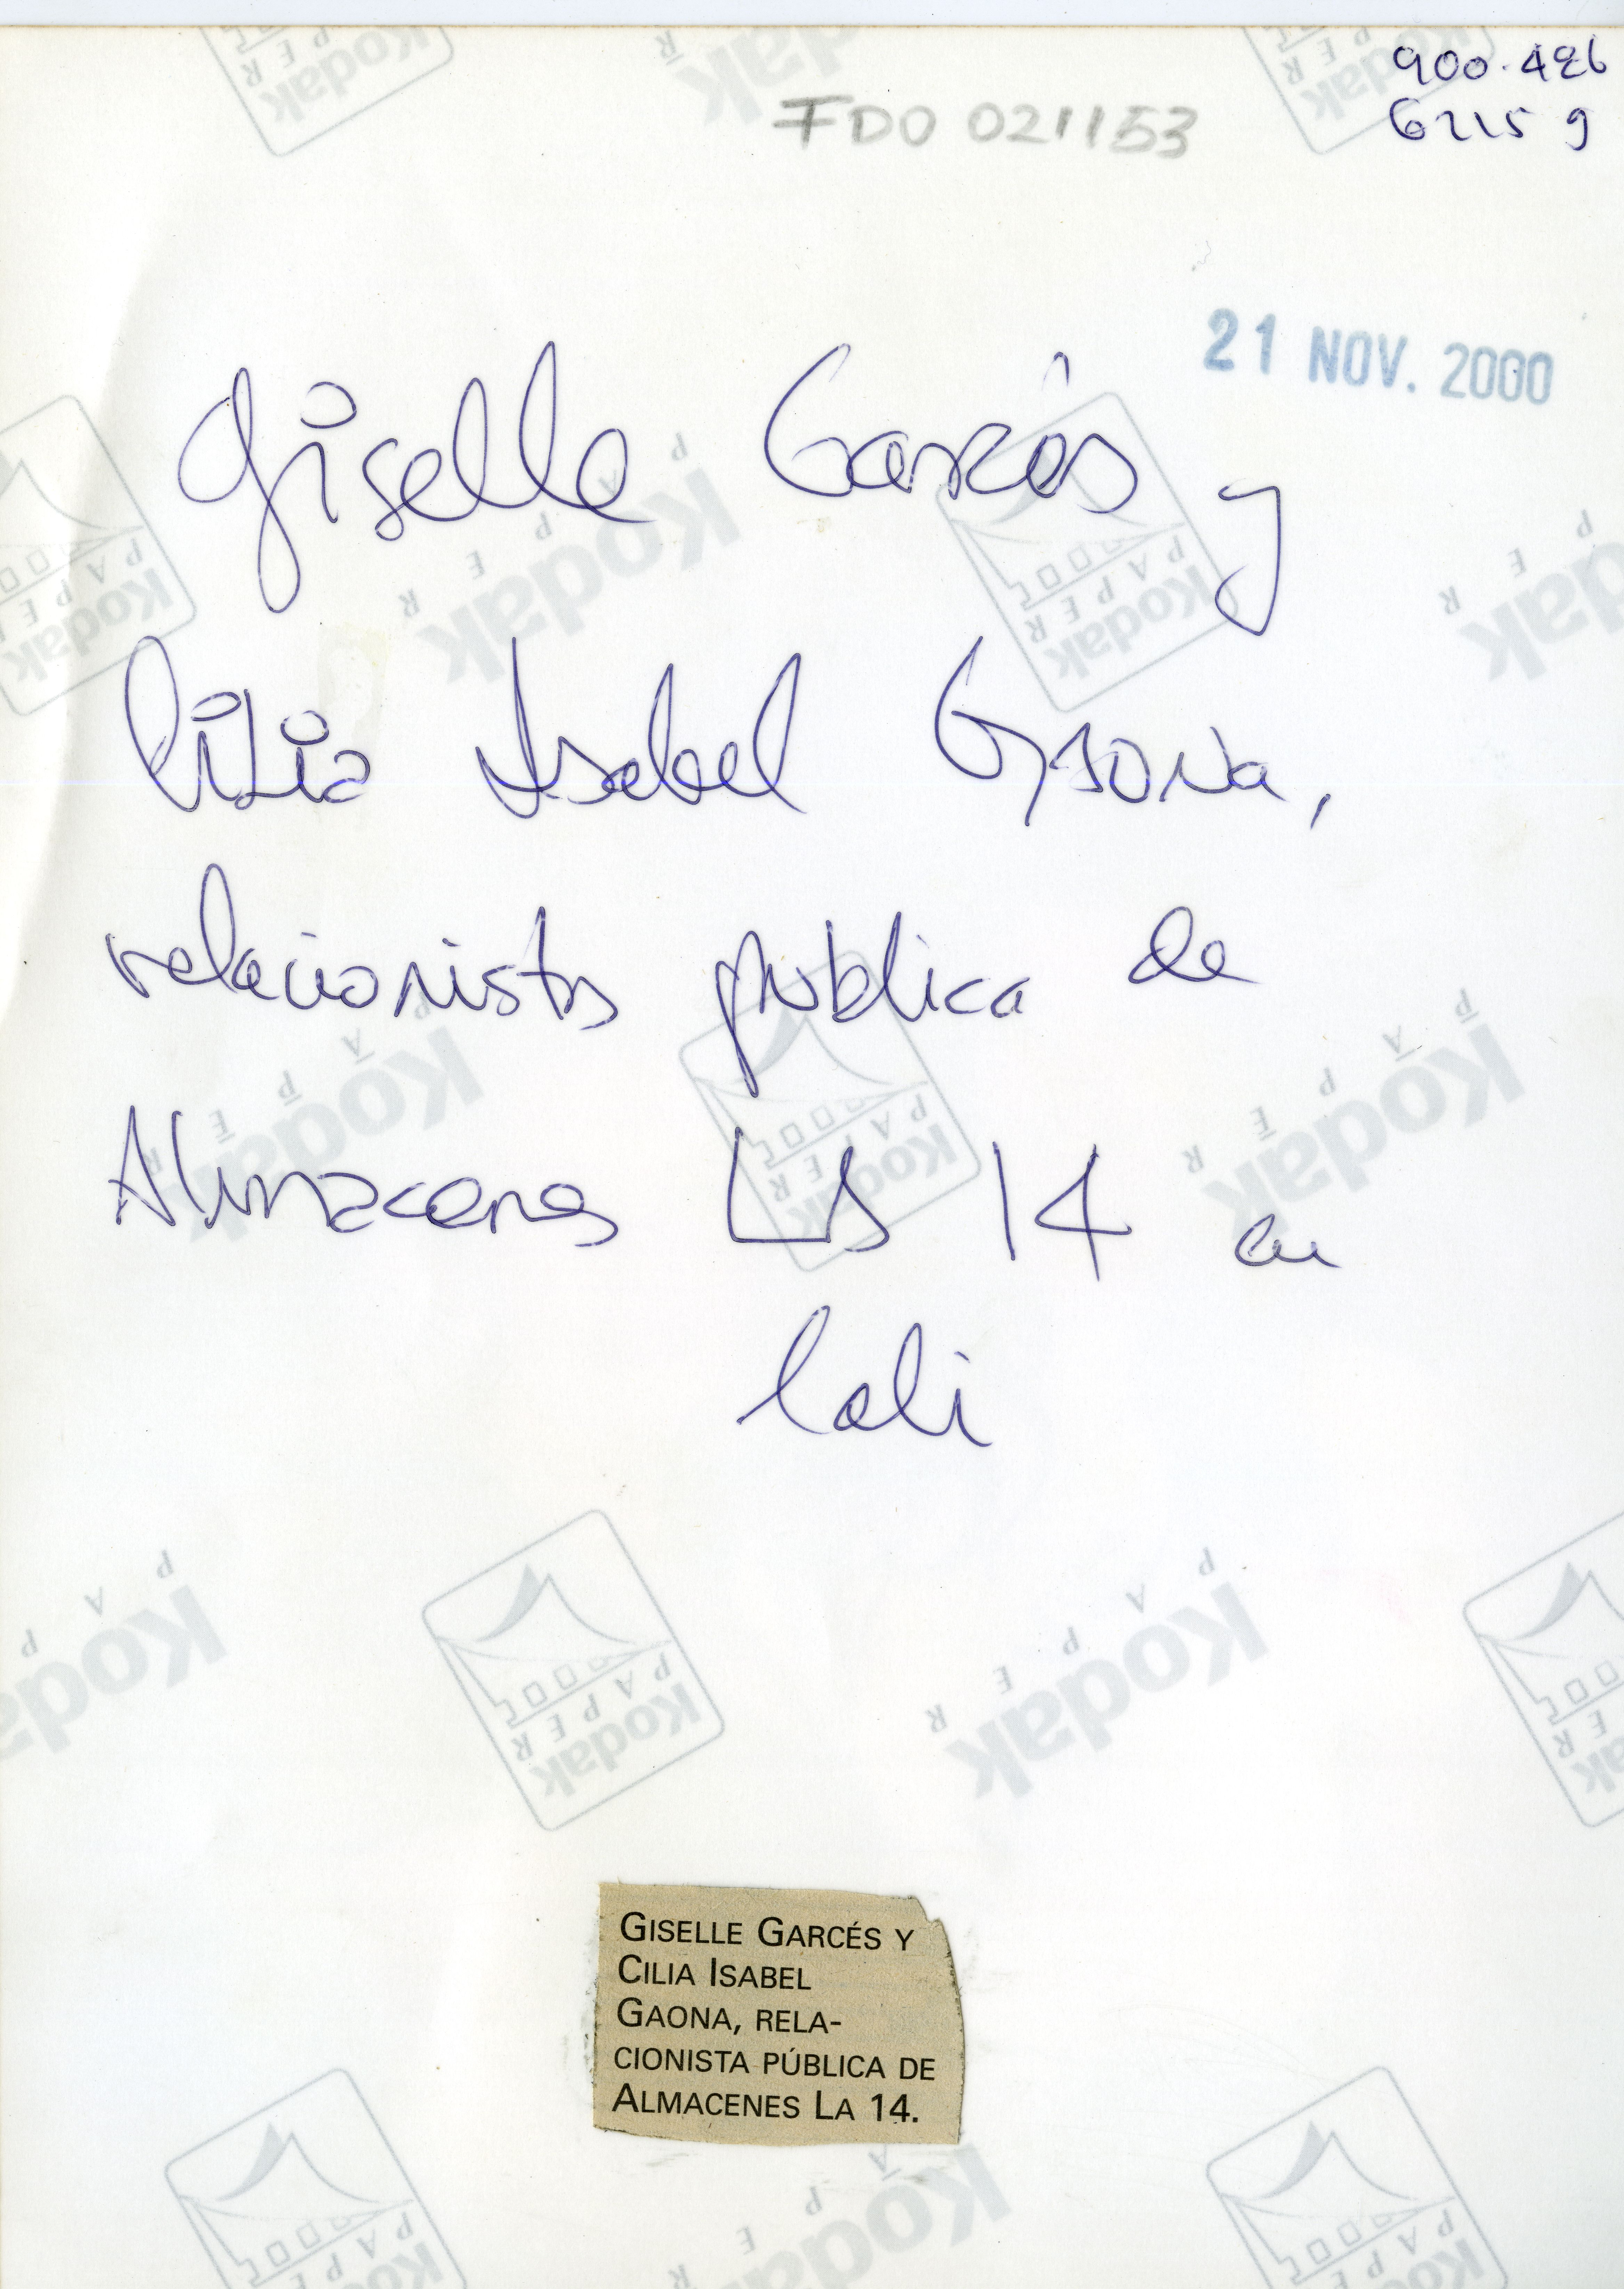 900.426
FDO 021153
6215 g
21 NOV. 2000
Giselle Garcés y
Cilia Isabel Gaona,
relacionista publica de
Almacenes La 14 en
Cali
GISELLE GARCÉS Y
CILIA ISABEL
GAONA, RELA-
CIONISTA PÚBLICA DE
ALMACENES LA 14.
Kodak
PAPER